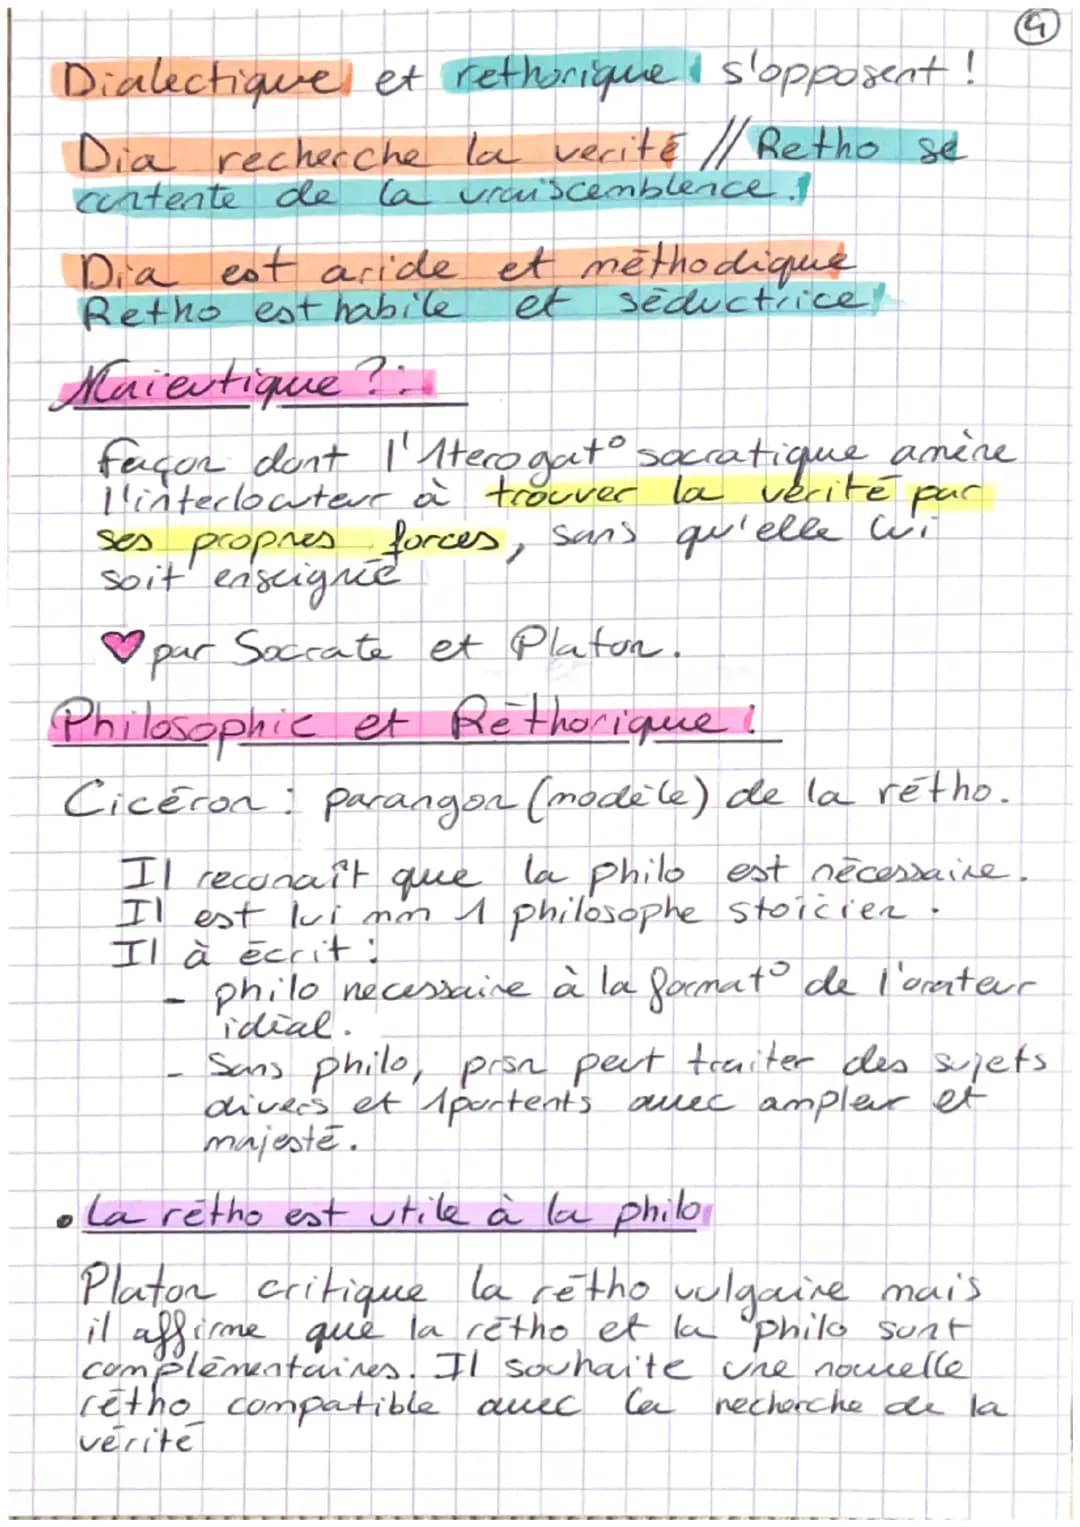 4
Dialectique et rethorique s'opposent !
Dia recherche la verité // Retho se
contente de la vraiscemblence !
Dia est aride et méthodique
Retho est habile et séductrice
Maïeutique ? :
façon dont l'1terogat° socratique amène
l'interlocuteur à trouver la vérité par
ses propres forces, sans qu'elle lui
soit enseignée
♥ par Socrate et Platon.
Philosophie et Réthorique !
Cicéron : parangon (modèle) de la rétho.
Il reconaît que la philo est nécessaire.
Il est lui mm 1 philosophe stoïcien.
Il à écrit :
- philo necessaire à la format° de l'orateur
idéal.
- Sans philo, prsn peut traiter des sujets
divers et 1portents avec ampleur et
majesté.
• La rétho est utile à la philo
Platon critique la rétho vulgaire mais
il affirme que la rétho et la philo sont
complémentaires. Il souhaite une nouvelle
rétho compatible avec la recherche de la
vérité